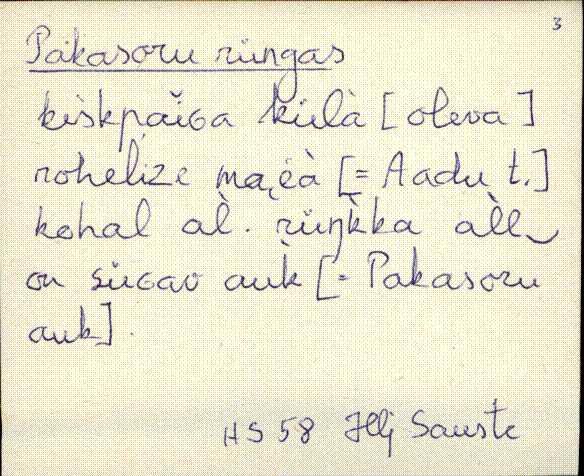 3
Pakasoru rüngas
kèskpaiɢa külà [oleva]
rohelize mae͔è̀ [= Aadu t.]
kohal al̀. rüŋ̀kka al̀l
on süɢav auk̀ [= Pakasoru
auk].
HS 58 Illj Sauste